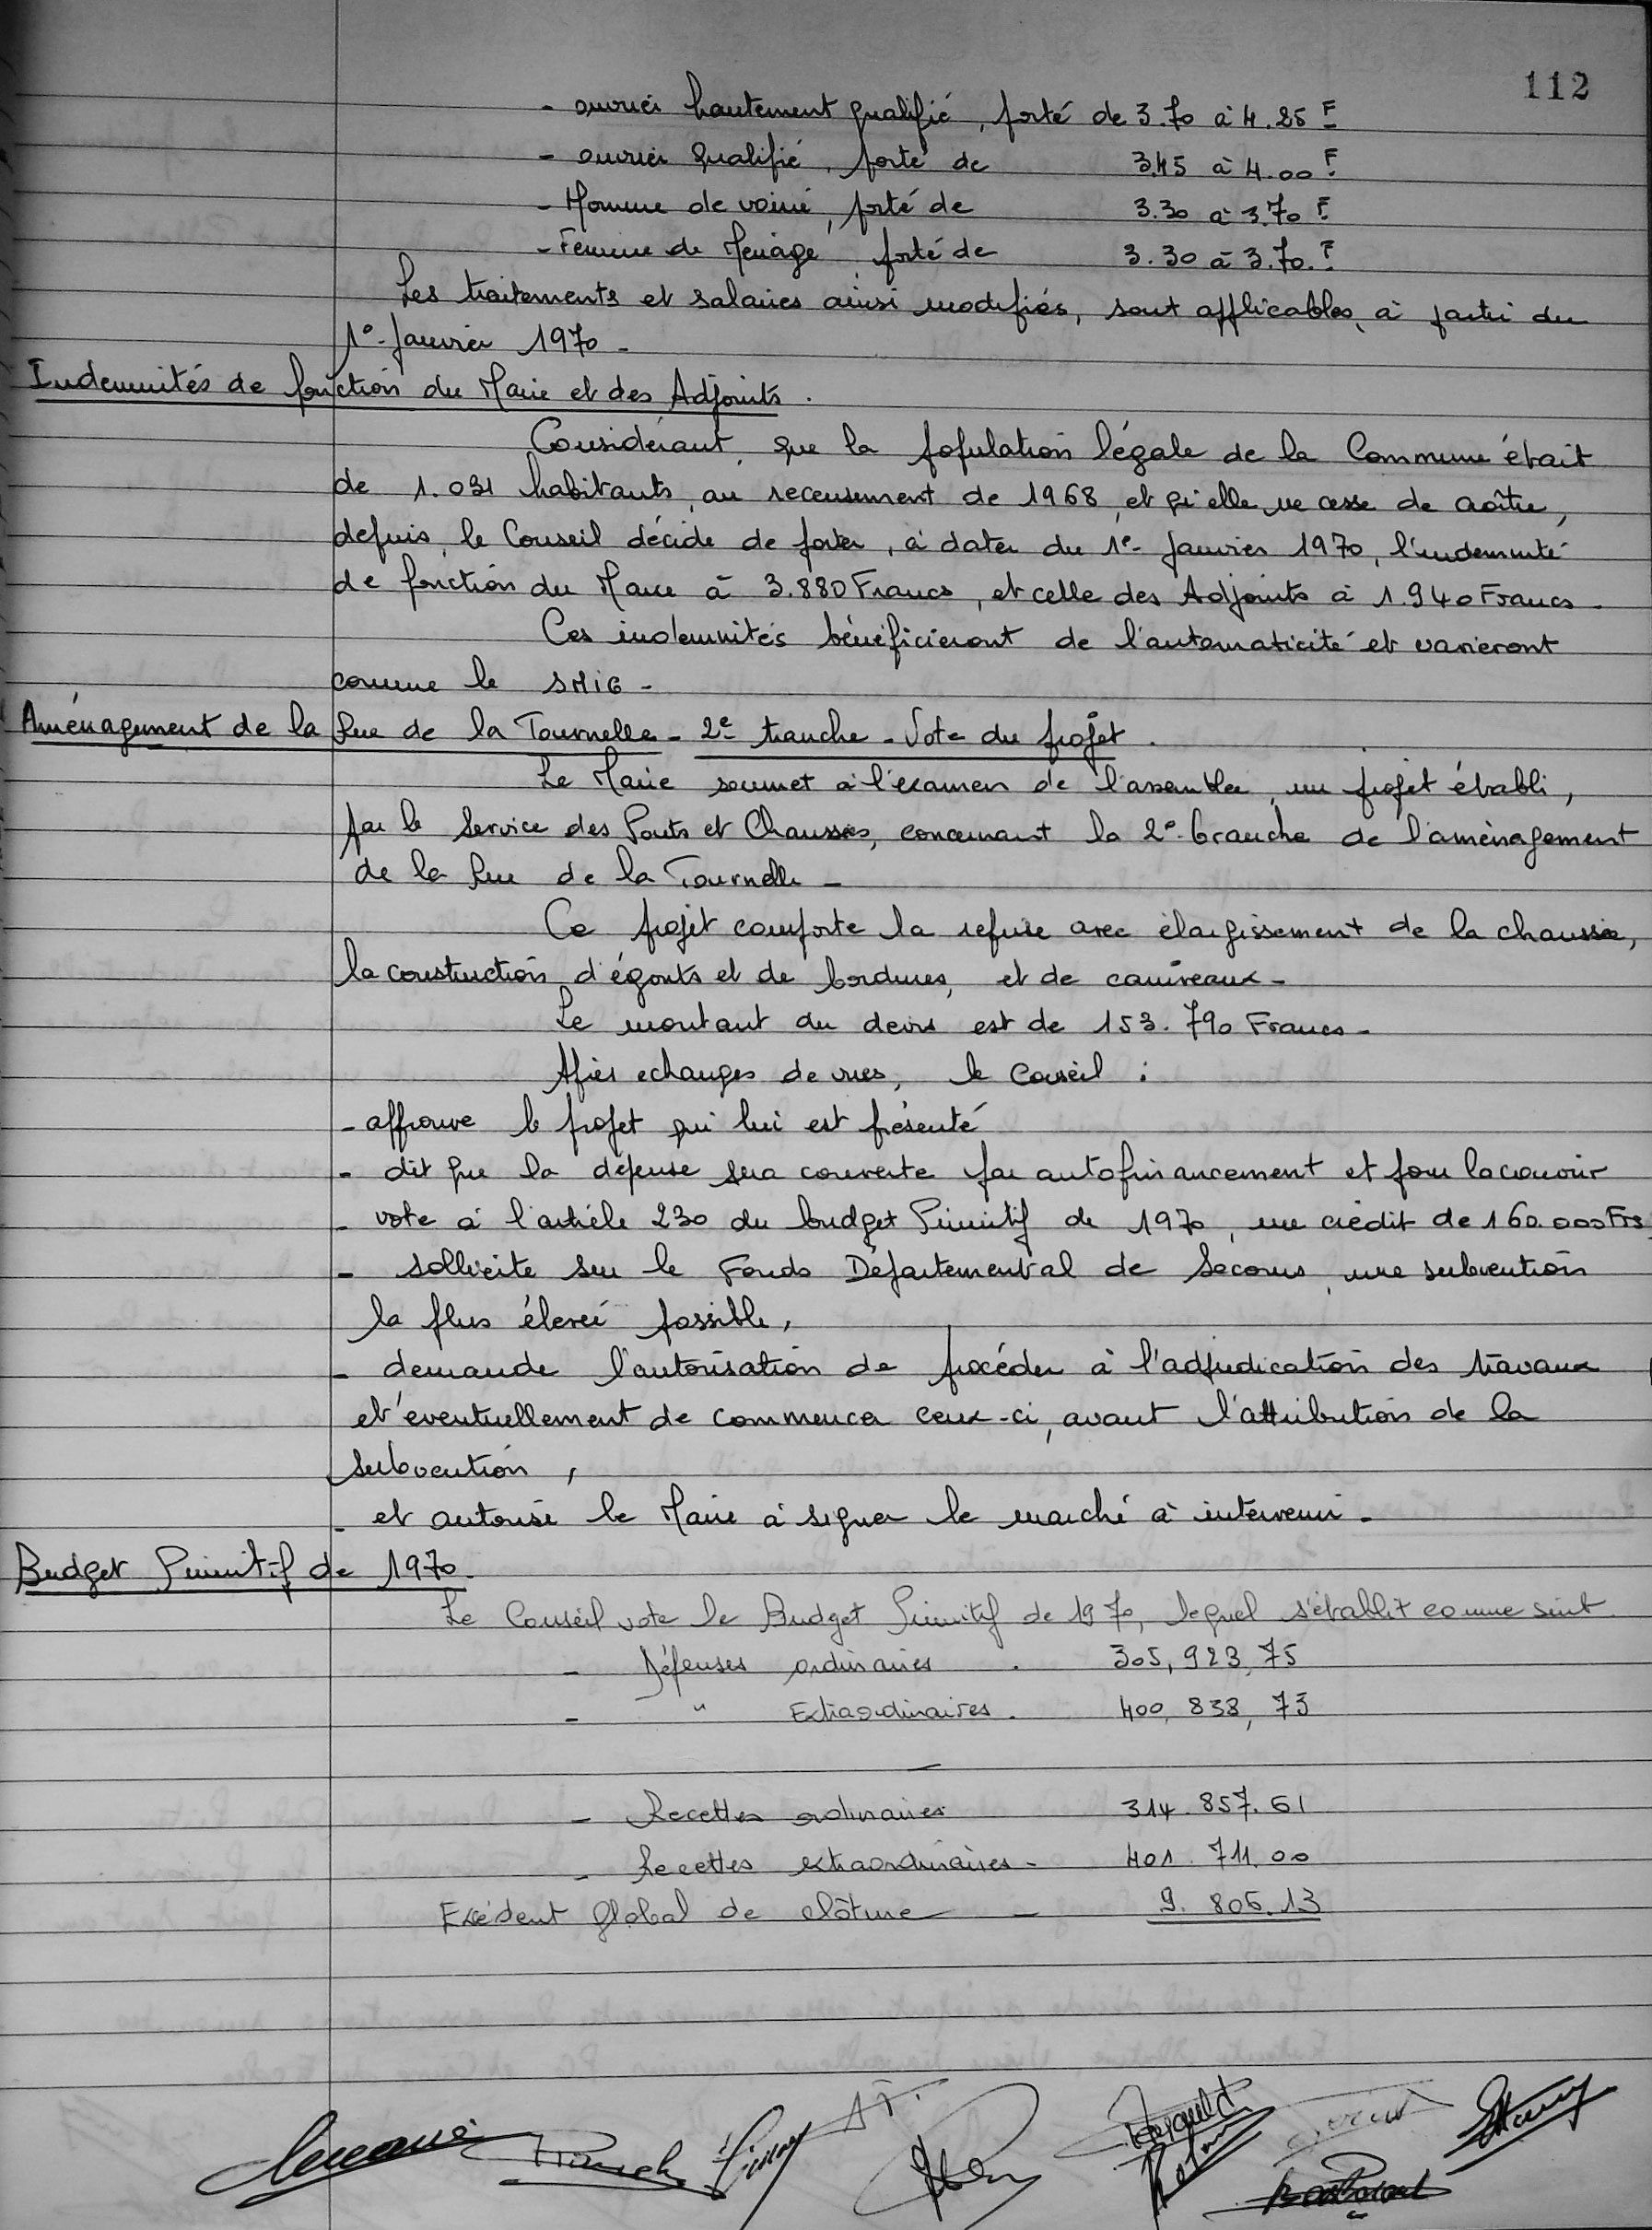 112
- ouvrier hautement qualifié, porté de 3.70 à 4.25 F
- ouvrier qualifié, porté de 3.45 à 4.00 F
- Homme de voirie, porté de 3.30 à 3.70 F
- Femme de Ménage porté de 3.30 à 3.70. F
Les traitements et salaires ainsi modifiés, sont applicables, à partir du
1º Janvier 1970 -
Indemnités de fonction du Maire et des Adjoints.
Considérant, que la population légale de la Commune était
de 1.031 habitants, au recensement de 1968, et qu'elle ne cesse de croître,
depuis, le Conseil décide de porter, à dater du 1º Janvier 1970, l'indemnité
de fonction du Maire à 3.880 Francs, et celle des Adjoints à 1.940 Francs -
Ces indemnités bénéficieront de l'automaticité et varieront
comme le SMIG -
Aménagement de la Rue de la Tournelle - 2e tranche - Vote du projet.
Le Maire soumet à l'examen de l'assemblée, un projet établi,
par le Service des Ponts et Chaussées, concernant la 2e tranche de l'aménagement
de la Rue de la Tournelle -
Ce projet comporte la refuse avec élargissement de la chaussée,
la construction d'égouts et de bordures, et de caniveaux -
Le montant du devis est de 153.790 Francs -
Après echanges de vues, le Conseil :
- approuve le projet qui lui est présenté
- dit que la dépense sera couverte par autofinancement et pour la couvrir
- vote à l'article 230 du budget Primitif de 1970, un crédit de 160.000 Frs
- sollicite sur le Fonds Départemental de Secours, une subvention
la plus élevée possible,
- demande l'autorisation de procéder à l'adjudication des travaux
et éventuellement de commencer ceux-ci, avant l'attribution de la
subvention,
- et autorise le Maire à signer le marché à intervenir -
Budget Primitif de 1970.
Le Conseil vote le Budget Primitif de 1970, lequel s'établit comme suit
- Dépenses ordinaires . 305,923,75
- " Extraordinaires . 400,838,73
- Recettes ordinaires 314.857.61
- Recettes extraordinaires - 401.711.00
Excédent Global de clôture - 9.806.13